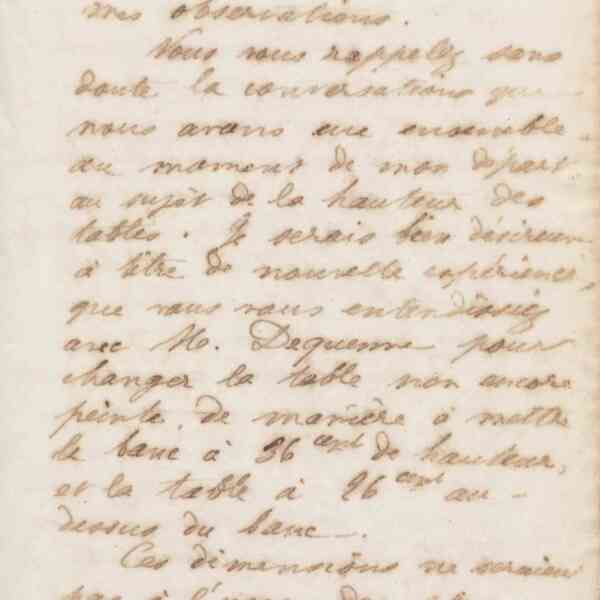 mes observations.
Vous vous rappelez sans
doute la conversation que
nous avons eue ensemble
au moment de mon départ
au sujet de la hauteur des
tables. Je serais bien désireux
à titre de nouvelle expérience,
que vous vous entendissiez
avec M. Dequenne pour
changer la table non encore
peinte, de manière à mettre
le banc à 36 cent de hauteur,
et la table à 26 cent au-
dessus du banc.
Ces dimensions ne seraient
pas à l'